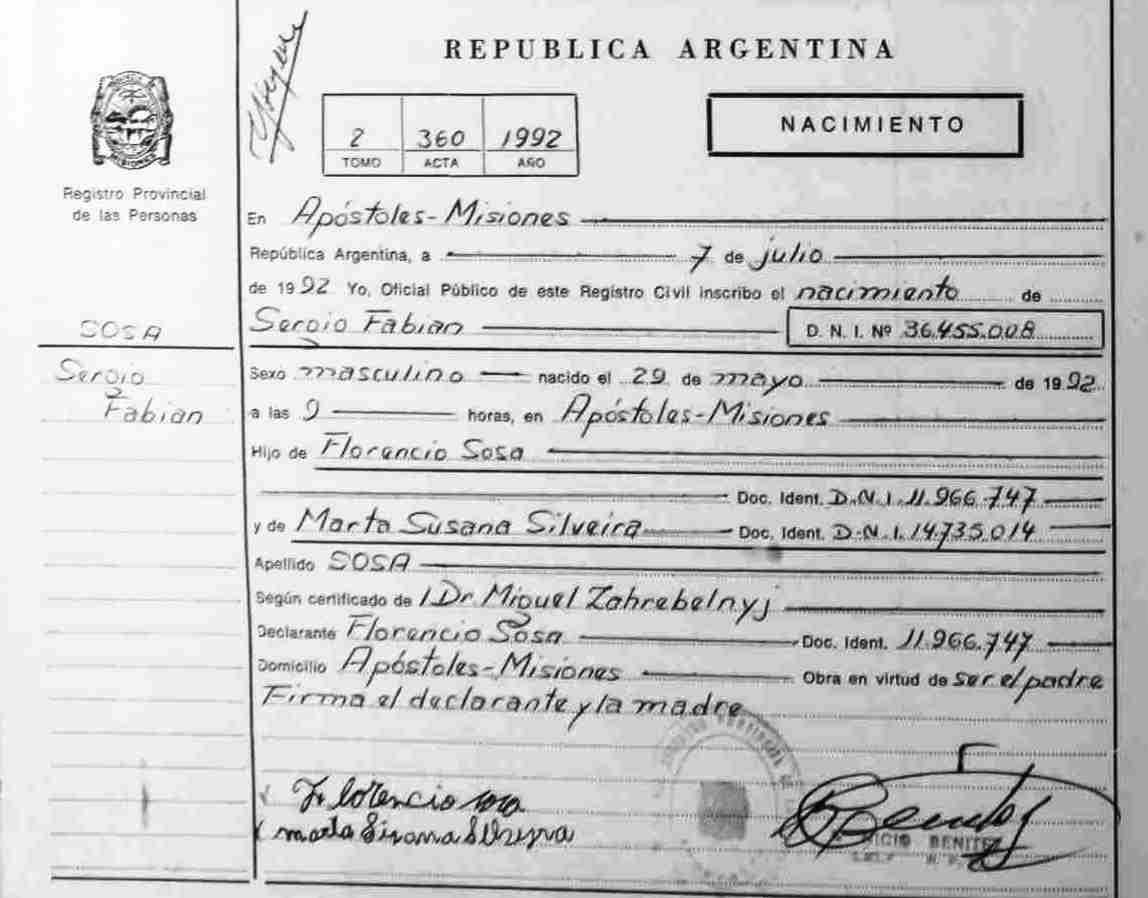 REPUBLICA ARGENTINA
NACIMIENTO
2 360 1992
TOMO ACTA AÑO
MISIONES
Registro Provincial
de las Personas
SOSA
Sergio
Fabian
En Apóstoles-Misiones
República Argentina, a 7 de julio
de 1992 Yo, Oficial Público de este Registro Civil inscribo el nacimiento de
Sergio Fabian D. N. I. Nº 36.455.008
Sexo masculino nacido el 29 de mayo de 1992
a las 9 horas, en Apóstoles-Misiones
Hijo de Florencio Sosa
Doc. Ident. D.N.I. 11.966.747
y de Marta Susana Silveira Doc. Ident. D.N.I. 14.735.014
Apellido SOSA
Según certificado de 1 Dr Miguel Zahrebelnyj
Declarante Florencio Sosa Doc. Ident. 11.966.747
Domicilio Apóstoles-Misiones Obra en virtud de ser el padre
Firma el declarante y la madre
Florencio sosa
marta
BENITEZ